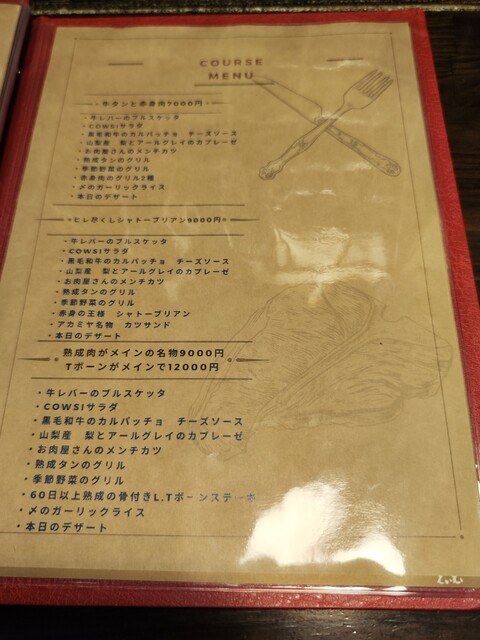 COURSE
MENU
牛タンと赤身肉7000円
・牛レバーのブルスケッタ
・COWSIサラダ
・黒毛和牛のカルパッチョ　チーズソース
・山梨産　梨とアールグレイのカプレーゼ
・お肉屋さんのメンチカツ
・熟成タンのグリル
・季節野菜のグリル
・赤身肉のグリル2種
・〆のガーリックライス
・本日のデザート
ヒレ尽くしシャトーブリアン9000円
・牛レバーのブルスケッタ
・COWSIサラダ
・黒毛和牛のカルパッチョ　チーズソース
・山梨産　梨とアールグレイのカプレーゼ
・お肉屋さんのメンチカツ
・熟成タンのグリル
・季節野菜のグリル
・赤身の王様　シャトーブリアン
・アカミヤ名物　カツサンド
・本日のデザート
熟成肉がメインの名物9000円
Tボーンがメインで12000円
・牛レバーのブルスケッタ
・COWSIサラダ
・黒毛和牛のカルパッチョ　チーズソース
・山梨産　梨とアールグレイのカプレーゼ
・お肉屋さんのメンチカツ
・熟成タンのグリル
・季節野菜のグリル
・60日以上熟成の骨付きL,Tボーンステーキ
・〆のガーリックライス
・本日のデザート